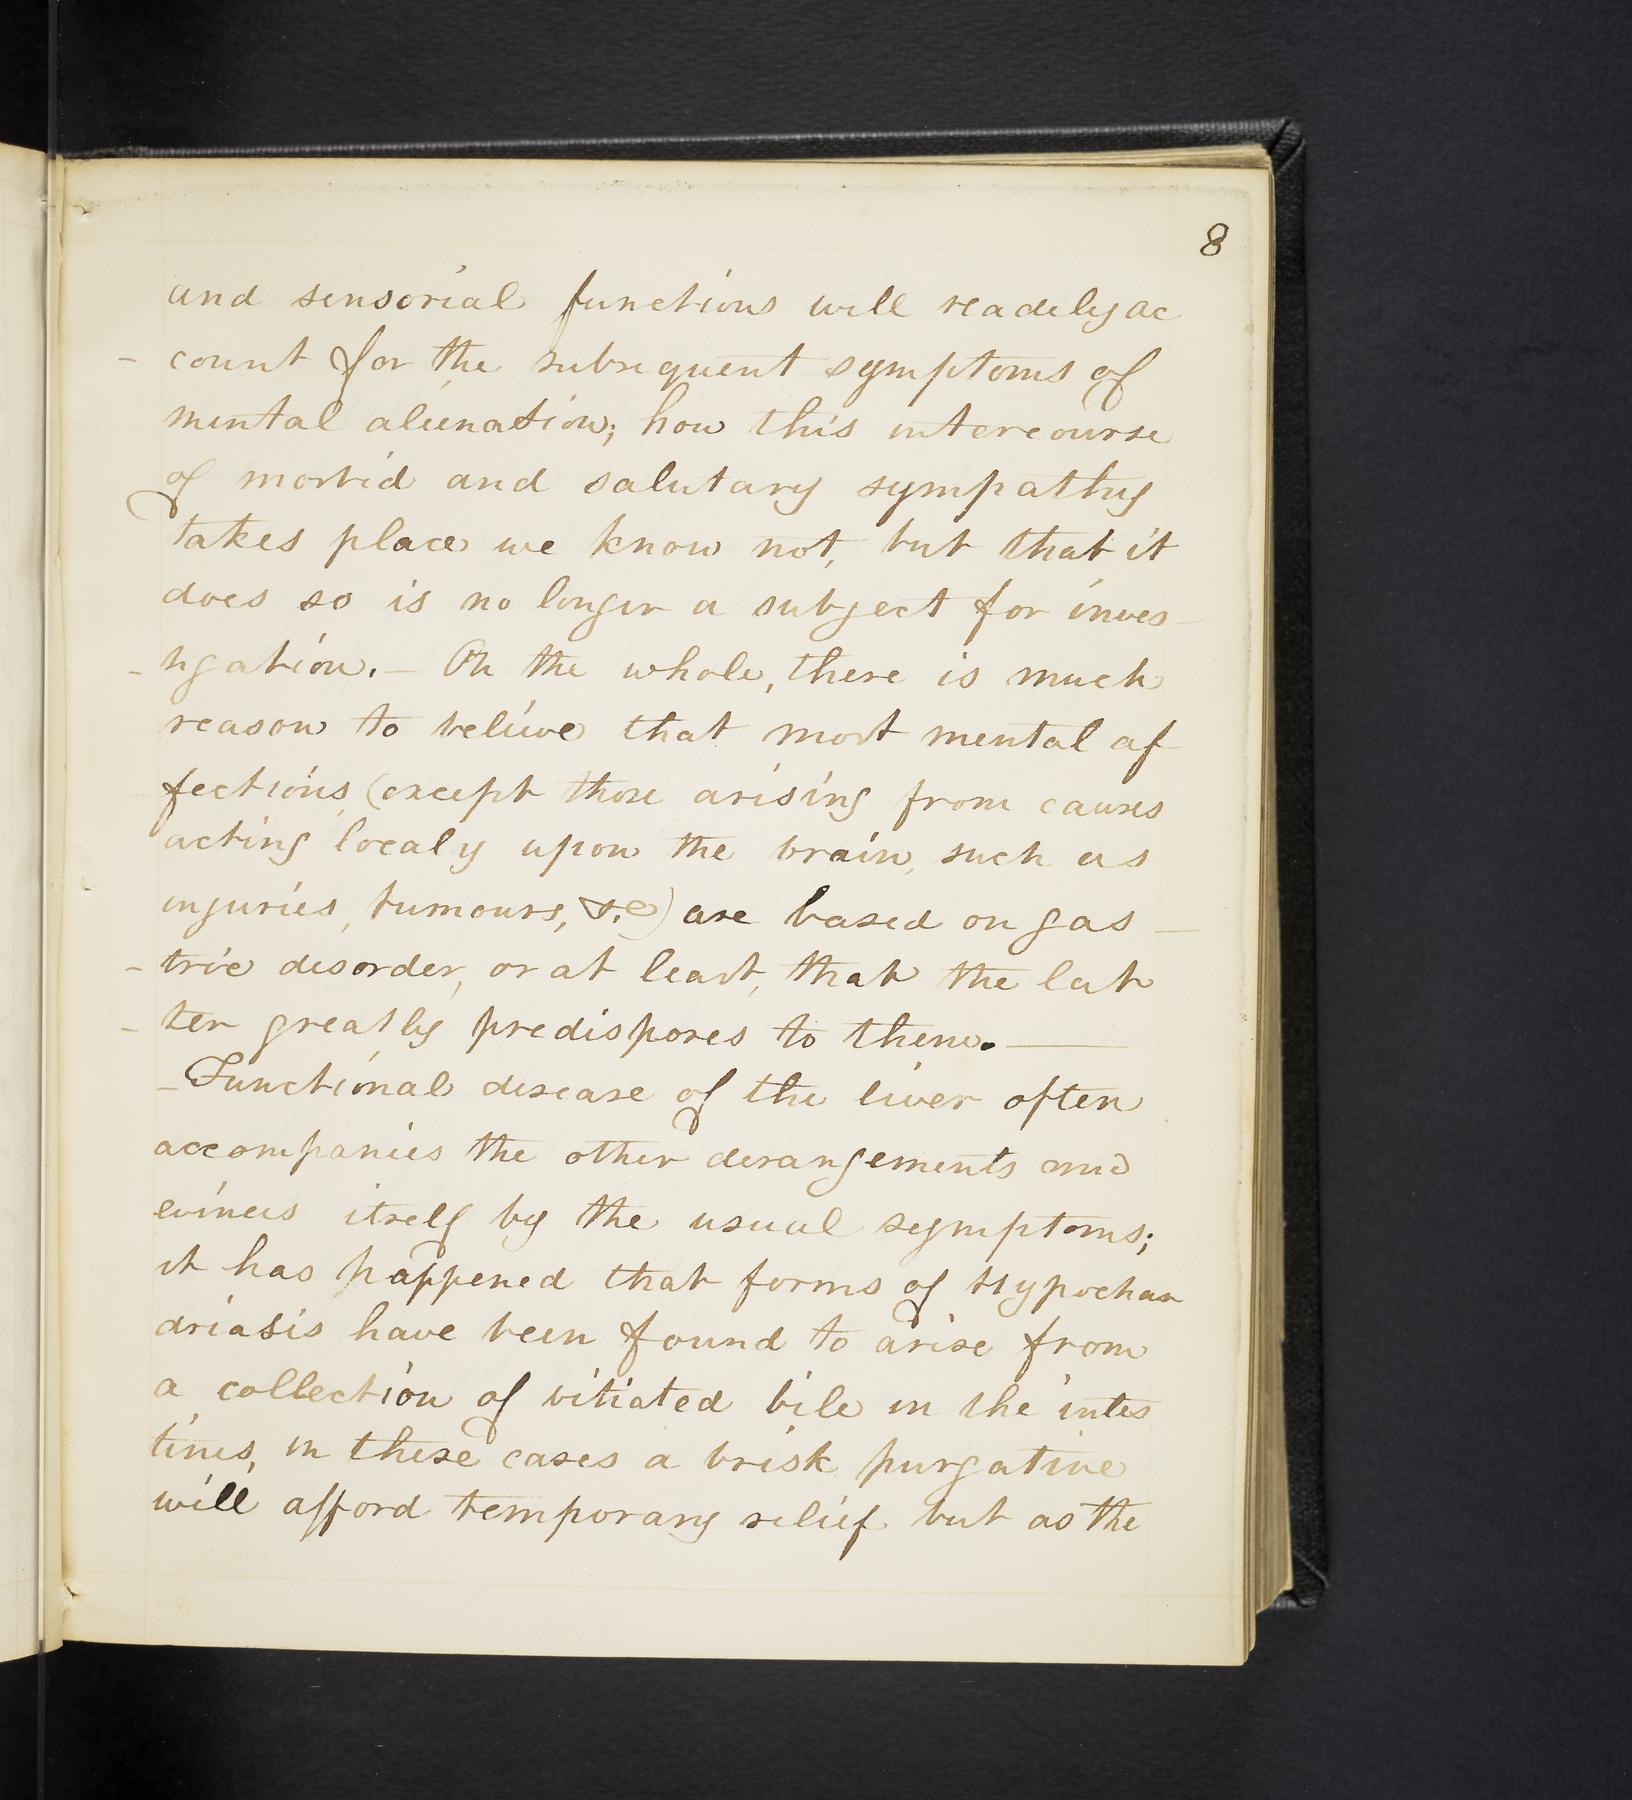 8
and sensorial functions will readily ac
- count for the subsequent symptoms of
mental alienation; how this intercourse
of morbid and salutary sympathy
takes place we know not, but that it
does so is no longer a subject for inves-
- tigation. — On the whole, there is much
reason to believe that most mental af
fections (except those arising from causes
acting localy upon the brain, such as
injuries, tumours, &c) are based on gas-
- tric disorder, or at least, that the lat
- ter greatly predisposes to them. —
- Functional disease of the liver often
accompanies the other derangements and
evinces itself by the usual symptoms;
it has happened that forms of Hypochon
driasis have been found to arise from
a collection of vitiated bile in the intes
tines, in these cases a brisk purgative
will afford temporary relief but as the